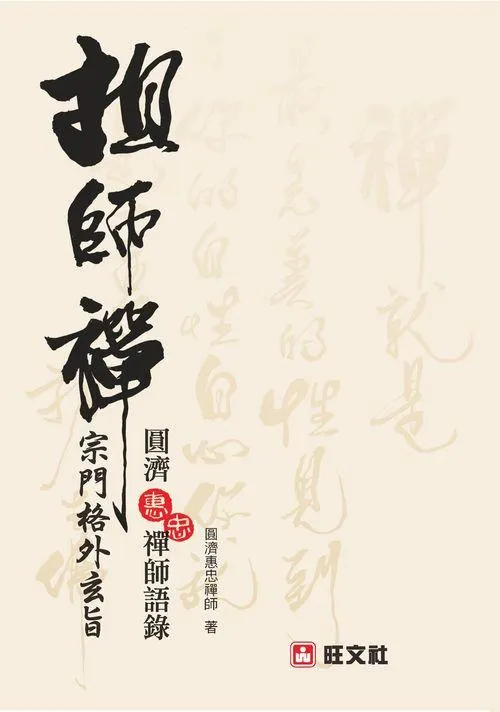 祖師禪
宗門格外玄旨
圓濟惠忠禪師語錄
圓濟惠忠禪師 著
旺文社
禪就是
的性見到
你的自性自心